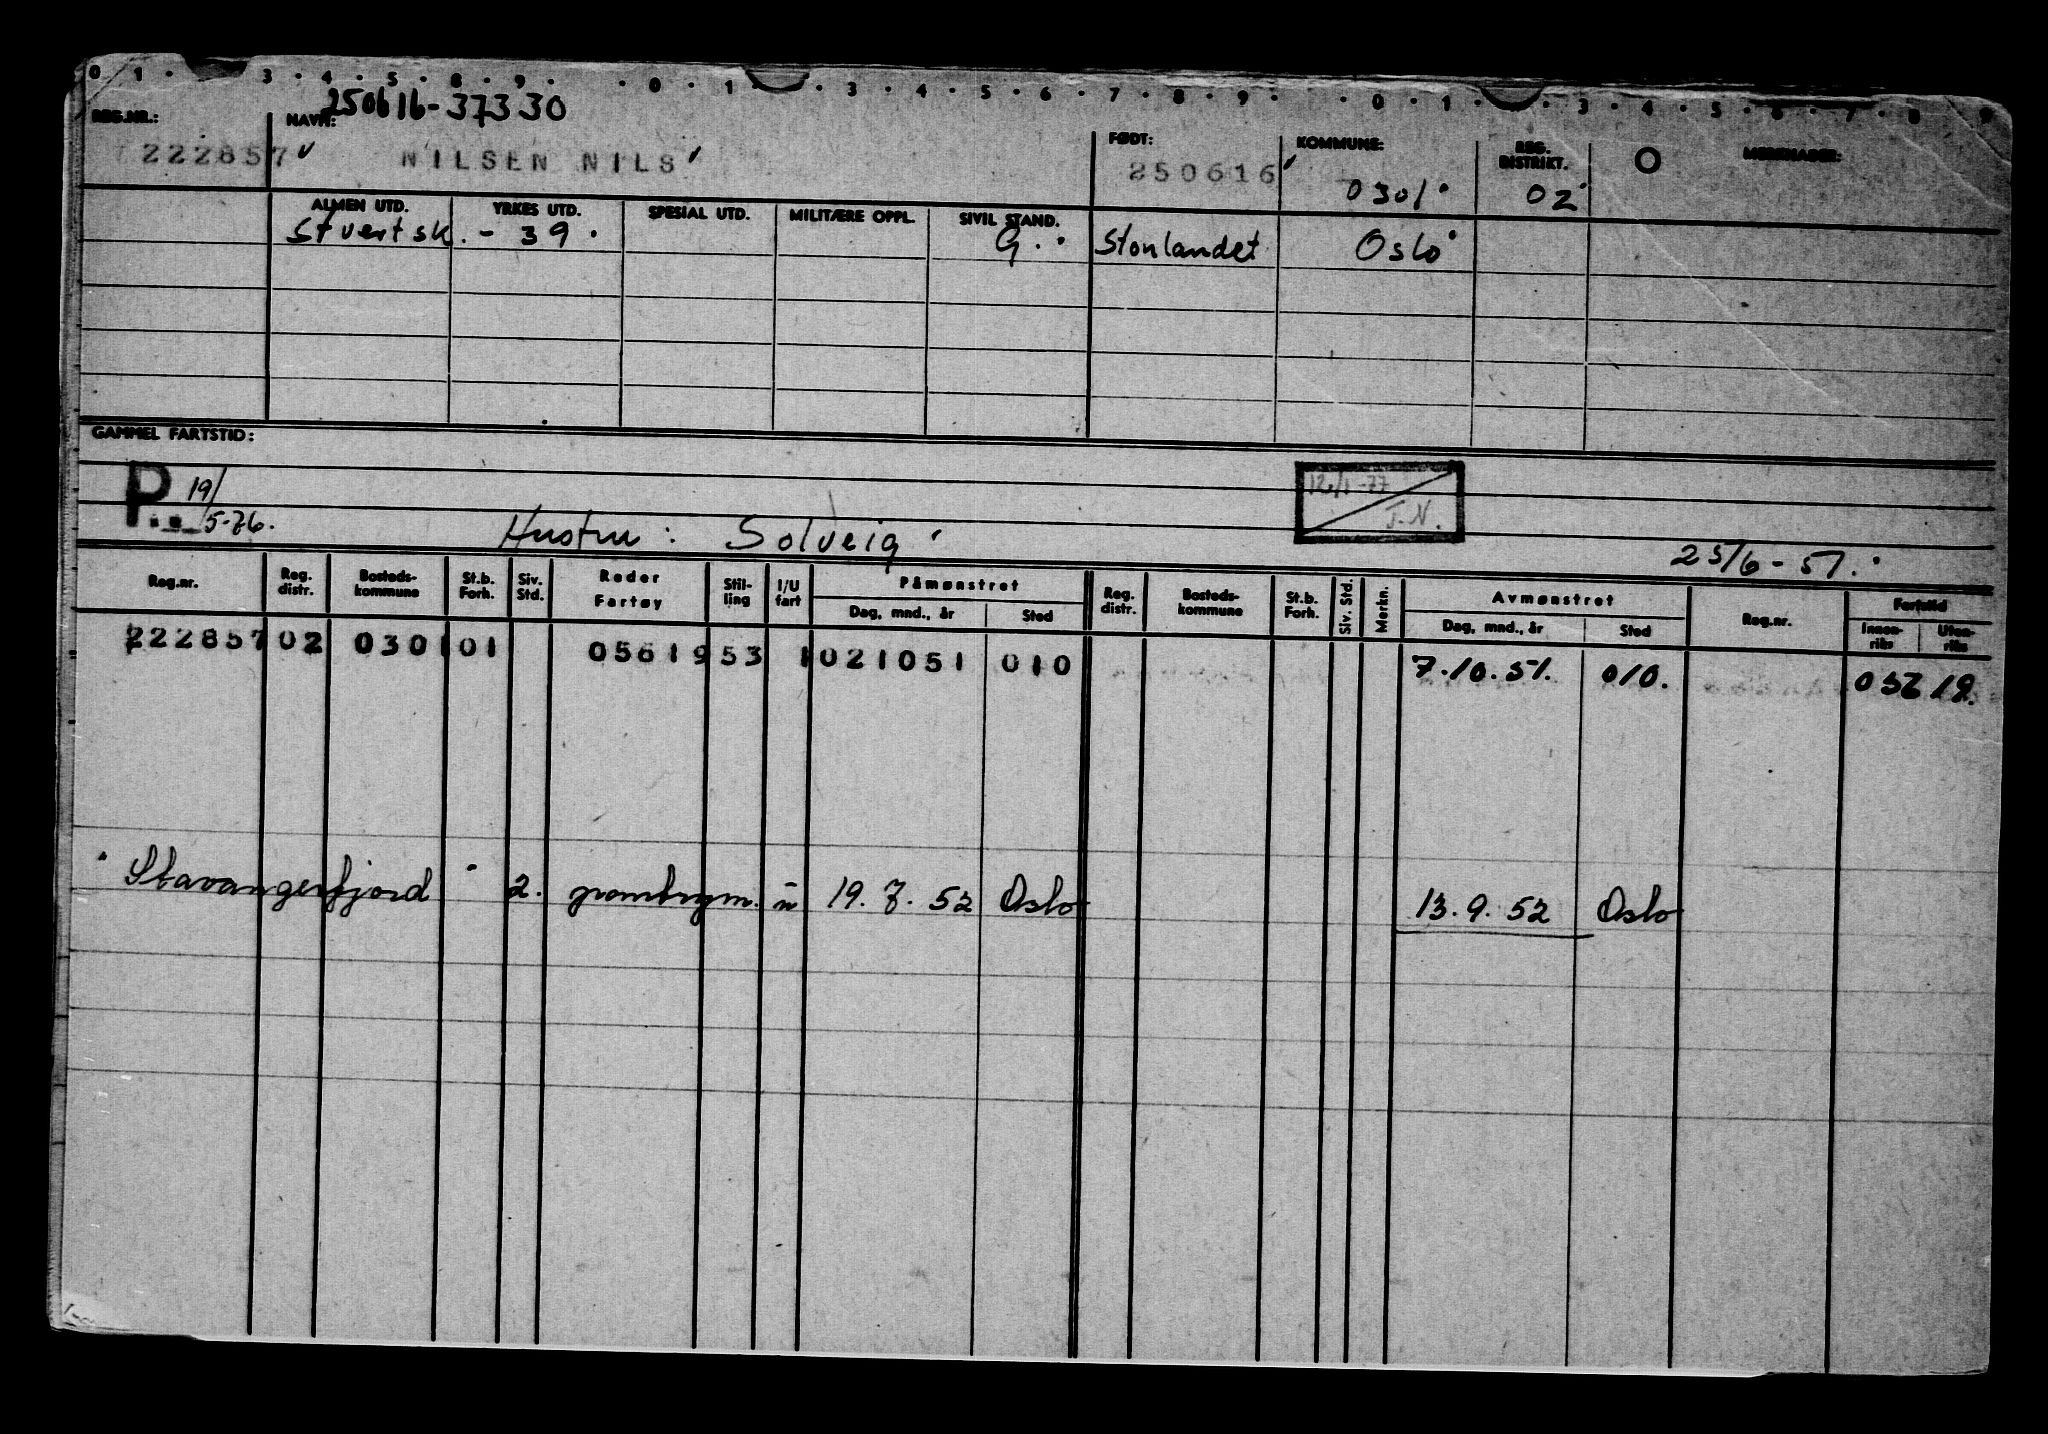 0 1 · 3 · 4 · 5 · 8 · 9 · · 0 · 1 · 3 · 4 · 5 · 6 · 7 · 8 · 9 · · 0 · 1 · 3 · 4 · 5 · 6 · 7 · 8 9
250616-37330
REG.NR.: NAVN: FØDT: KOMMUNE: REG. DISTRIKT. MERKNADER:
222857 NILSEN NILS 250616 0301 02
ALMEN UTD. YRKES UTD. SPESIAL UTD. MILITÆRE OPPL. SIVIL STAND.
Stuertsk. - 39 G. Stonlandet Oslo
GAMMEL FARTSTID:
P 19/5-76. 12/1-77 J.N.
Hustru : Solveig 25/6-51.
Reg.nr. Reg. distr. Bosteds-kommune St.b. Forh. Siv. Std. Reder Fartøy Stil-ling I/U fart Påmønstret Reg. distr. Bosteds-kommune St.b. Forh. Siv. Std. Merkn. Avmønstret Reg.nr. Fartstid
Dag, mnd., år Sted Dag, mnd., år Sted Innen-riks Uten-riks
222857 02 0301 01 05619 53 1 021051 010 7.10.51. 010.
"Stavangerfjord" 2. u 19.7.52 Oslo 13.9.52 Oslo